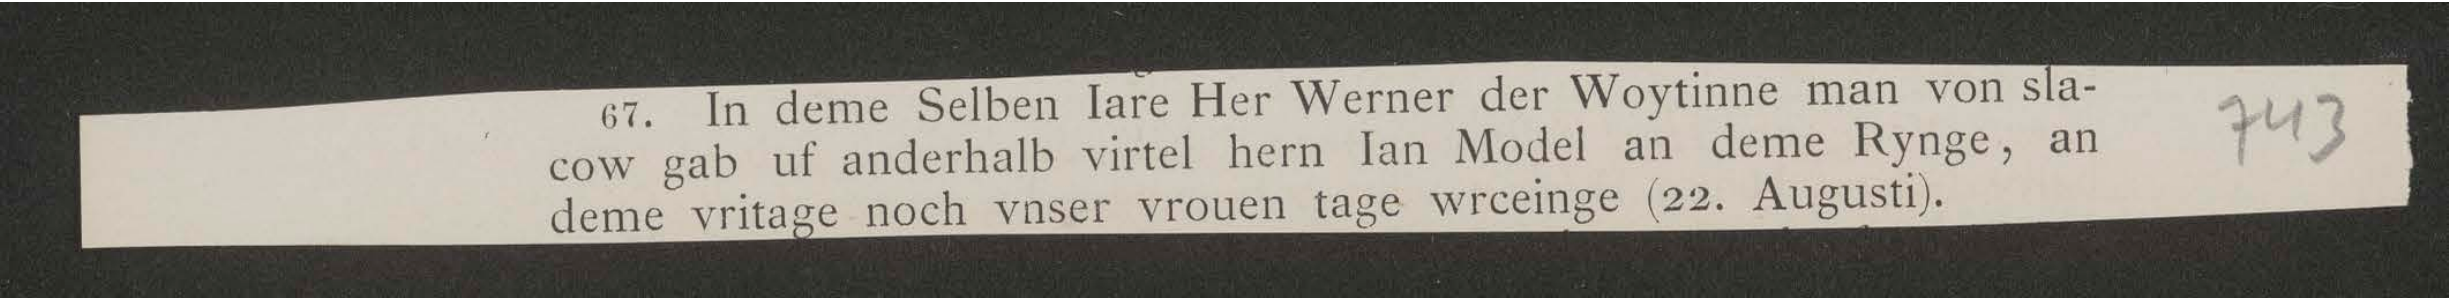 67. In deme Selben Iare Her Werner der Woytinne man von sla-
cow gab uf anderhalb virtel hern Ian Model an deme Rynge, an
deme vritage noch vnser vrouen tage wrceinge (22. Augusti).
743